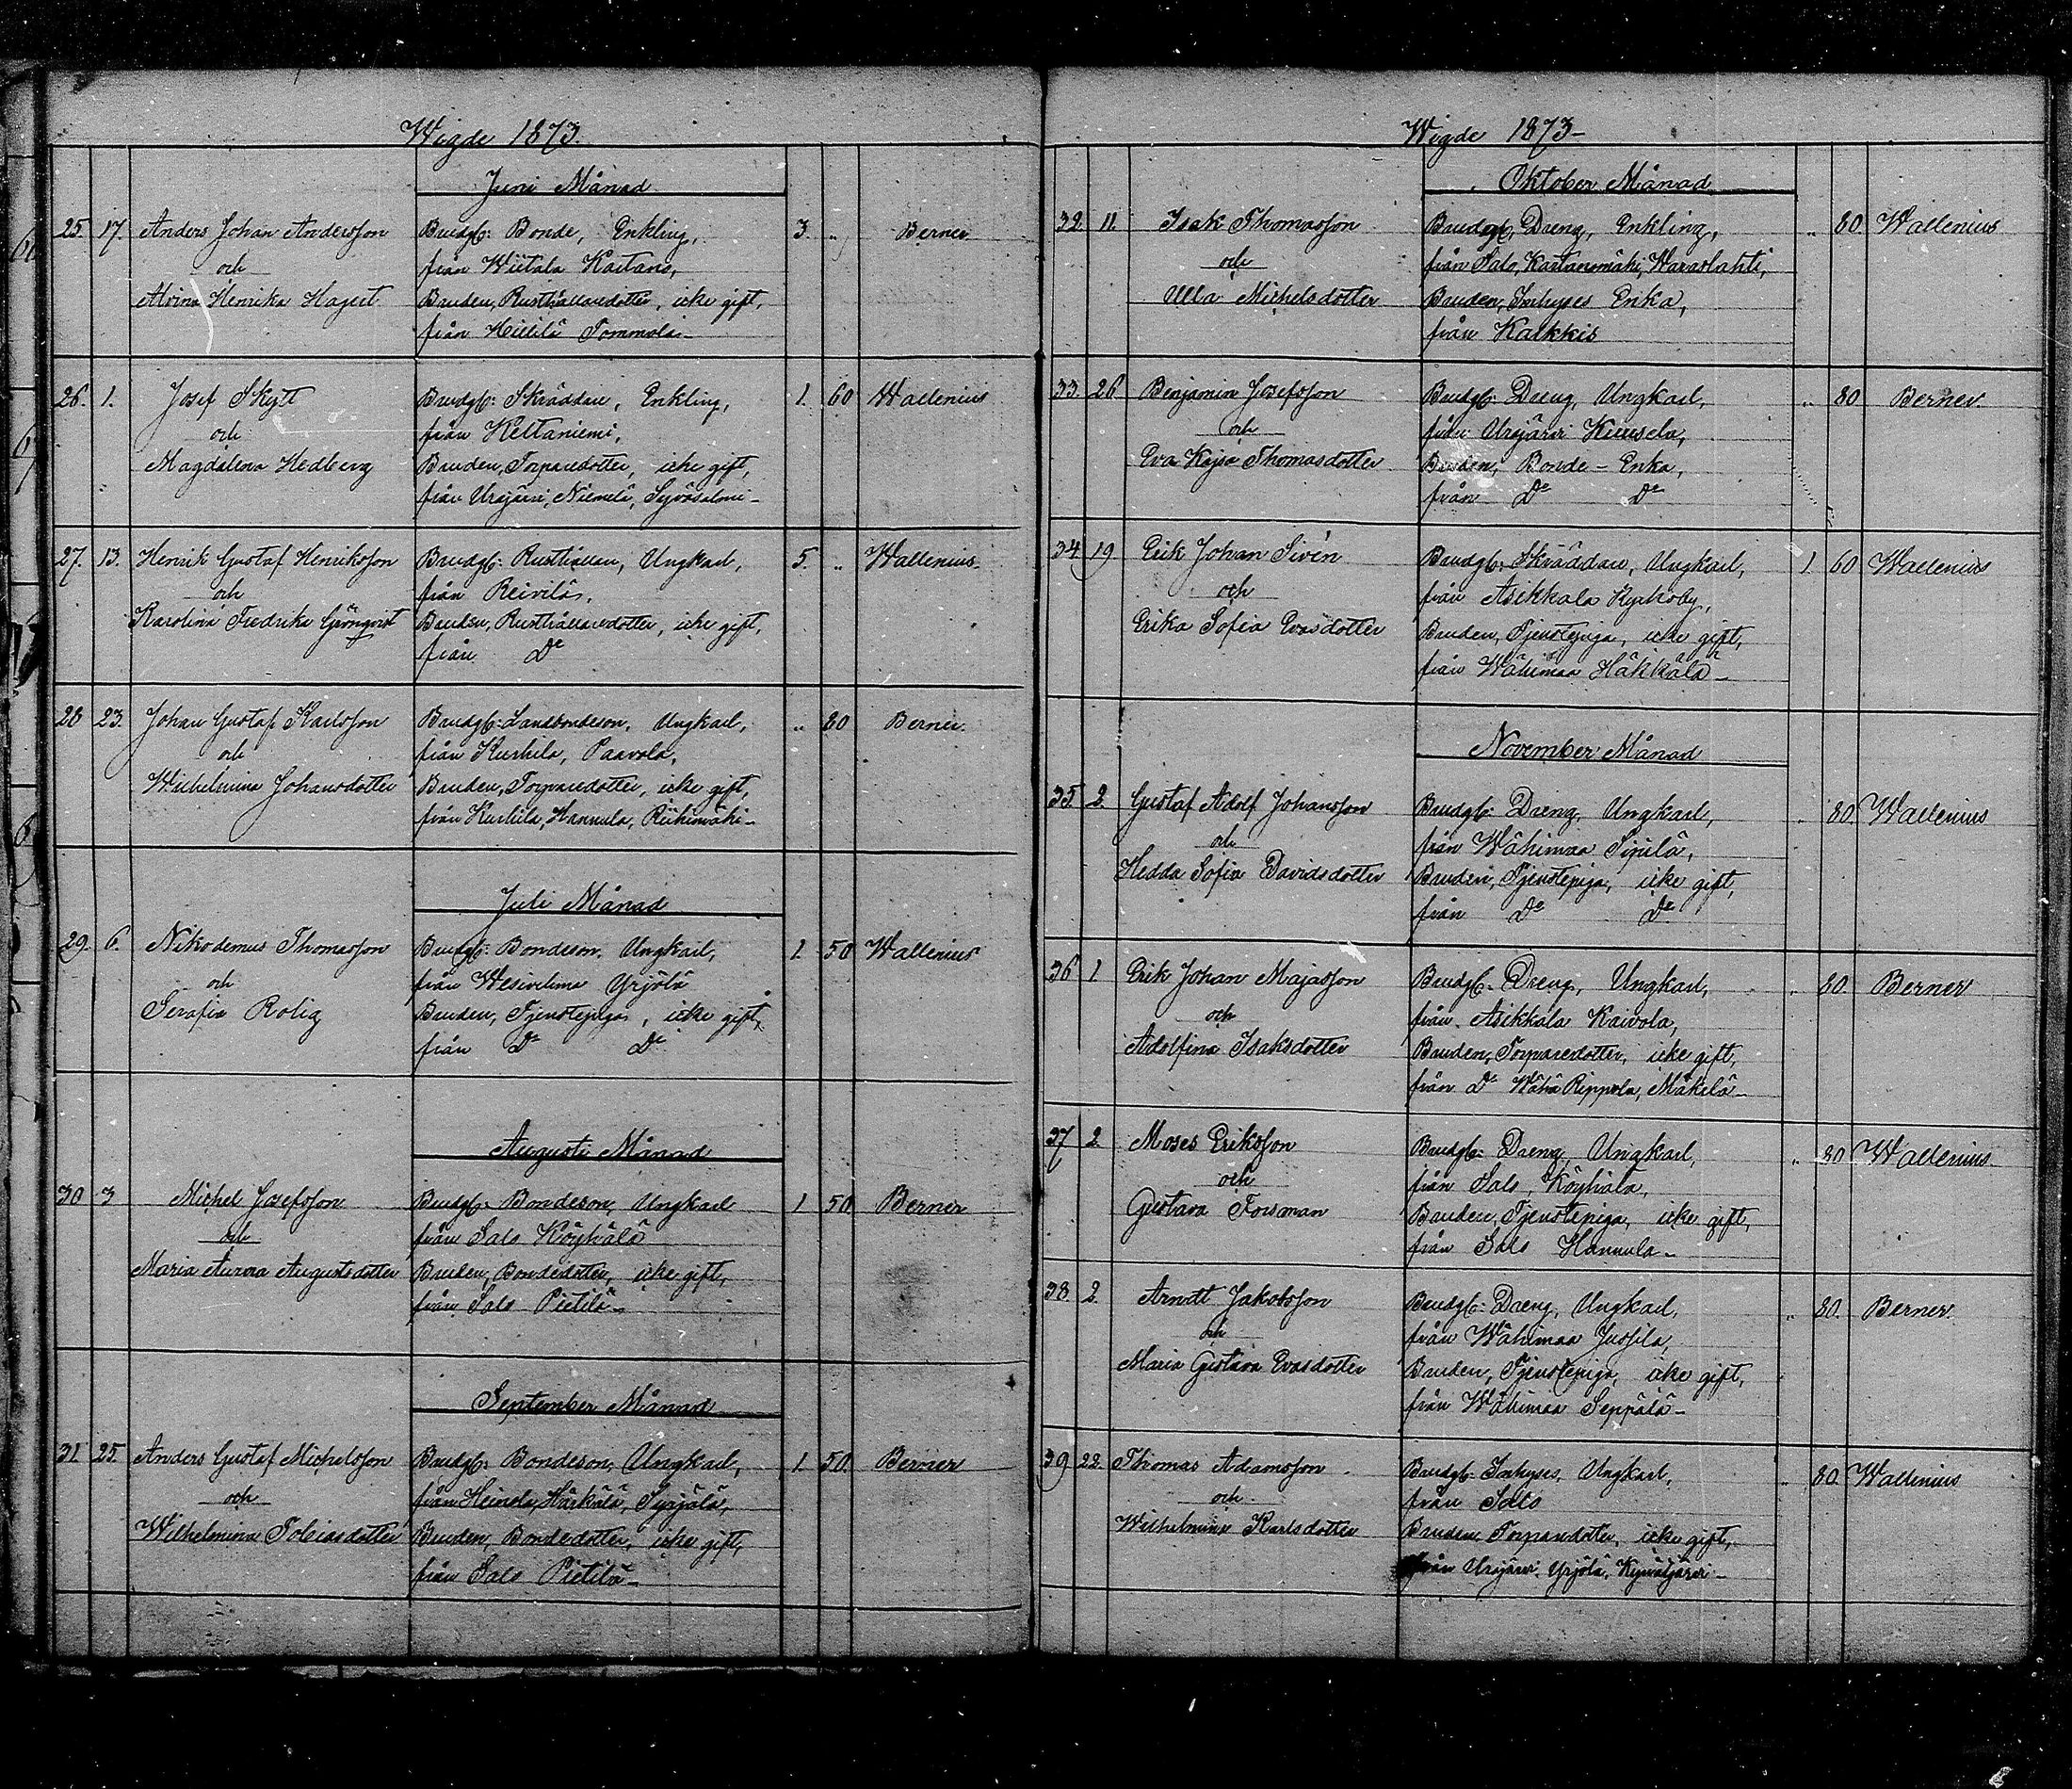 Wigde 1873.
Juni Månad
25. 17. Anders Johan Andersson Brudg: Bonde, Enkling, 3. „ Berner.
och från Wiitala Kaitans,
Alvina Henrika Hagert Bruden, Rusthållaredotter, icke gift,
från Hillilä Tommola
26. 1. Josef Skytt Brudg: Skräddare, Enkling, 1. 60 Wallenius
och från Keltaniemi,
Magdalena Hedberg Bruden, Torparedotter, icke gift,
från Urajärvi, Niemelä, Syväsalmi
27. 13. Henrik Gustaf Henriksson Brudg: Rusthållare, Ungkarl, 5. „ Wallenius.
och från Reivilä,
Karolina Fredrika Grönqvist Bruden, Rusthållaredotter, icke gift,
från Do
28 23. Johan Gustaf Karlsson Brudg: Landbondeson, Ungkarl, „ 80 Berner.
och från Kurhila, Paavola,
Wilhelmina Johansdotter Bruden, Torparedotter, icke gift,
från Kurhila, Hannula, Riihimäki
Juli Månad
29. 6. Nikodemus Thomasson Brudg: Bondeson, Ungkarl, 1. 50 Wallenius
och från Wesivehma Yrjölä
Serafia Rolig Bruden, Tjenstepiga, icke gift,
från Do Do
Augusti Månad
30 3 Michel Josefsson Brudg: Bondeson, Ungkarl 1 50 Berner
och från Salo Köyhälä
Maria Aurora Augustsdotter Bruden, Bondedotter, icke gift,
från Salo Pietilä
September Månad
31. 25. Anders Gustaf Michelsson Brudg: Bondeson, Ungkarl, 1. 50. Berner
och från Heinola, Härkälä, Syrjälä,
Wilhelmina Tobiasdotter Bruden, Bondedotter, icke gift,
från Salo Pietilä
Wigde 1873
Oktober Månad
32. 11. Isak Thomasson Brudg: Dreng, Enkling, „ 80 Wallenius
och från Salo, Kartanomäki, Waraslahti,
Ulla Michelsdotter Bruden, Inhyses Enka,
från Kalkkis
33. 26 Benjamin Josefsson Brudg: Dreng, Ungkarl, „ 80 Berner.
och från Urajärvi Kuusela,
Eva Kajsa Thomasdotter Bruden, Bonde-Enka,
från Do Do
34 19 Erik Johan Sivén Brudg: Skräddare, Ungkarl, 1 60 Wallenius
och från Asikkala Kyrkoby,
Erika Sofia Evasdotter Bruden, Tjenstepiga, icke gift,
från Wähimaa Häkkälä
November Månad
35. 2. Gustaf Adolf Johansson Brudg: Dreng, Ungkarl, „ 80. Wallenius
och från Wähimaa Sipilä,
Hedda Sofia Davidsdotter Bruden, Tjenstepiga, icke gift,
från Do Do
36 1 Erik Johan Majasson Brudg: Dreng, Ungkarl, „ 80. Berner
och från Asikkala Kaivola,
Adolfina Isaksdotter Bruden, Torparedotter, icke gift,
från Do Wähä Rippola, Mäkelä
37 2 Moses Eriksson Brudg: Dreng, Ungkarl, „ 80 Wallenius
och från Salo, Köyhälä,
Gustava Forsman Bruden, Tjenstepiga, icke gift,
från Salo Hannula
38. 2. Arndt Jakobsson Brudg: Dreng, Ungkarl, „ 80. Berner.
och från Wähimaa Jussila,
Maria Gustava Evasdotter Bruden, Tjenstepiga, icke gift,
från Wähimaa Seppälä
39 22. Thomas Adamsson Brudg: Inhyses, Ungkarl, „ 80 Wallenius
och från Salo
Wilhelmina Karlsdotter Bruden Torparedotter, icke gift,
från Urajärvi, Yrjölä,